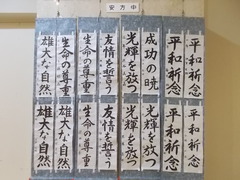 安方中
平和祈念
平和祈念
成功の暁
光輝を放つ
友情を誓う
生命の尊重
生命の尊重
雄大な自然
平和祈念
平和祈念
光輝を放つ
光輝を放つ
友情を誓う
友情を誓う
生命の尊重
雄大な自然
雄大な自然